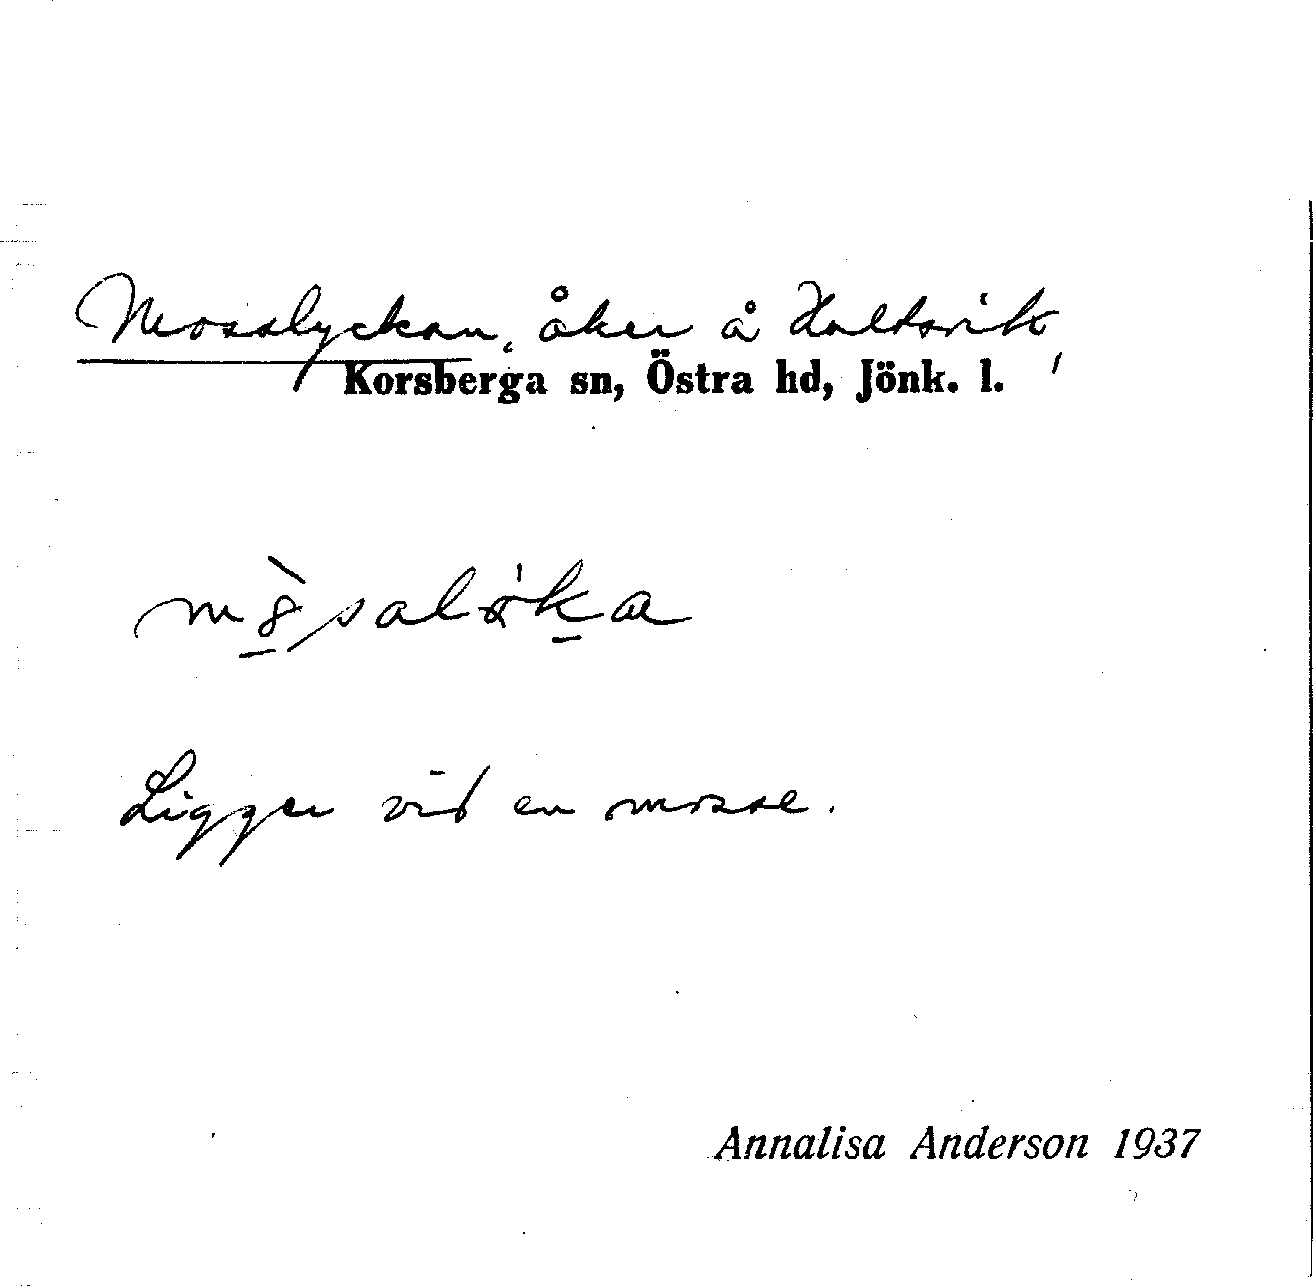 Mosslyckan, åker å Hultsvik,
Korsberga sn, Östra hd, Jönk. l.
Ligger vid en mosse.
Annalisa Anderson 1937